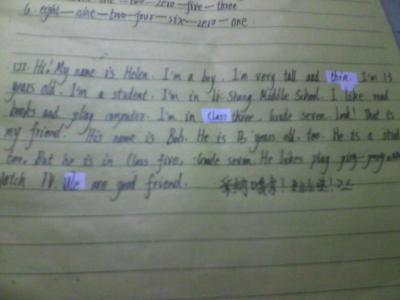 one — two — zero — five — three
6. eight — nine — two — four — six — zero — one.
III. Hi! My name is Helen. I'm a boy. I'm very tall and thin. I'm 13
years old. I'm a student. I'm in Li Shang Middle School. I like read
books and play computer. I'm in Class three, Grade seven. Look! That is
my friend. His name is Bob. He is 13 years old, too. He is a stud
too. But he is in Class five, Grade seven. He likes play ping-pong
watch TV. We are good friend.